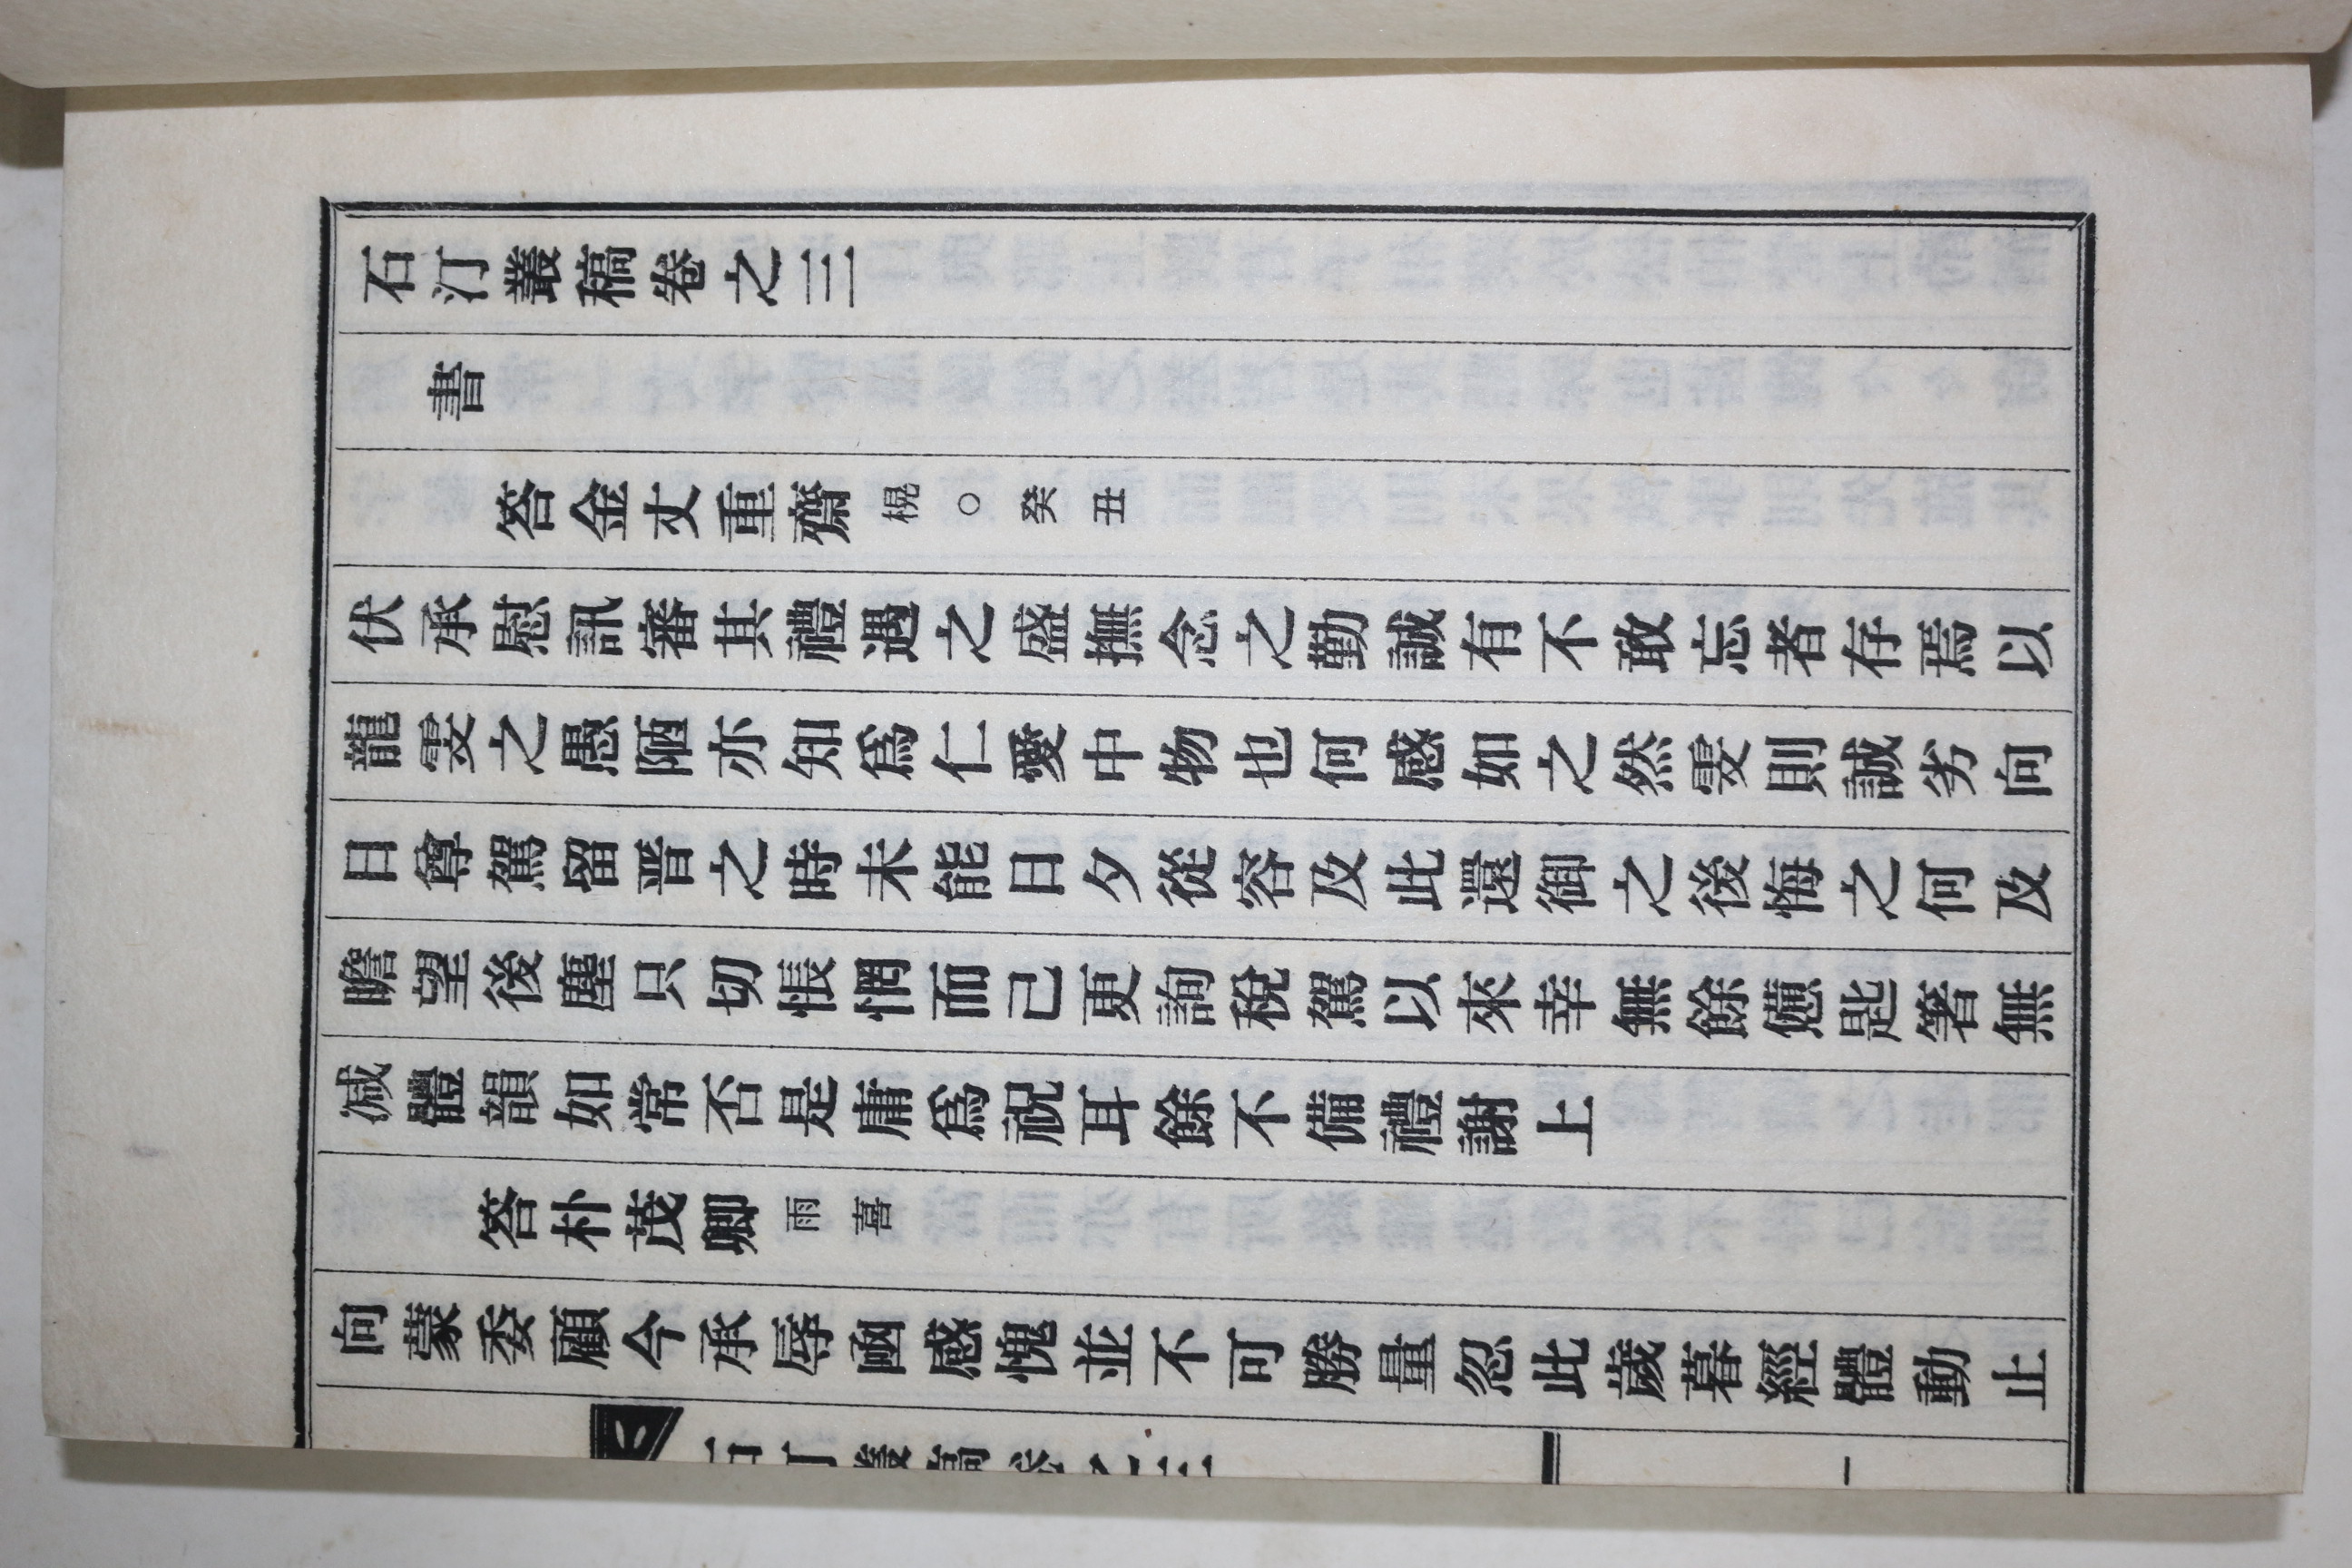 石汀叢稿卷之三
書
答金丈重齋榥○癸丑
伏承慰訊審其禮遇之盛撫念之勤誠有不敢忘者存焉以
龍雯之愚陋亦知爲仁愛中物也何感如之然雯則誠劣向
日尊駕留晋之時未能日夕從容及此還御之後悔之何及
瞻望後塵只切悵惘而已更詢稅駕以來幸無餘憊匙箸無
减體韻如常否是庸爲祝耳餘不備禮謝上
答朴茂卿雨喜
向蒙委顧今承辱凾感愧並不可勝量忽此歲暮經體動止
石汀叢稿卷之三
一